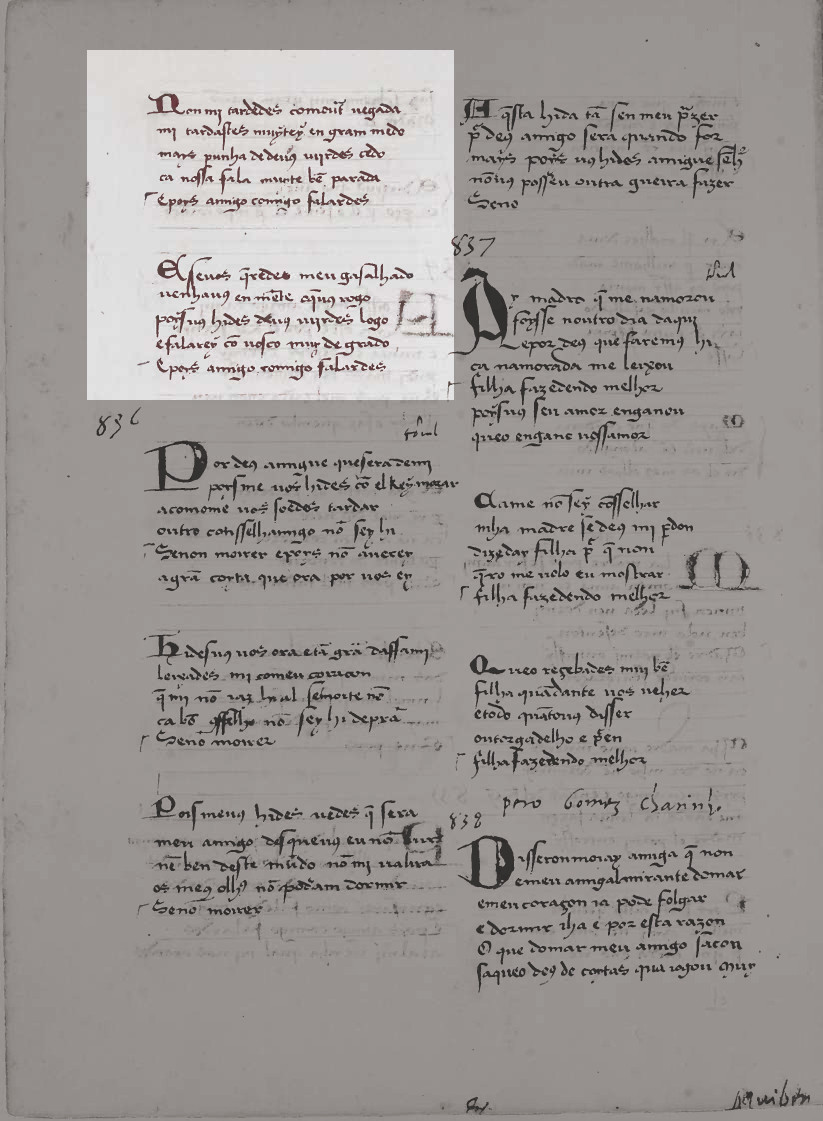 Non mi tardedes comout̃ uegada
mi tardastes muyteỹ en gram medo
mays punha dedeuꝯ uijrdes cedo
ca nossa fala muyte bẽ parada
Epoys amigo comigo falardes
E sseuos q̃redes meu gasalhado
uenhauꝯ en mẽte aq̃uꝯ rogo
poysuꝯ hides deuꝯ uijrdes logo
efalarey cõ uosco muy de grado
Epoys amigo comigo falardes
836
tornel
Por deus amigue que sera demi
poys me uos hides cõ el Rey morar
acomome uos soedes tardar
outro conselhamigo nõ sey hi
Senon moirer epoys nõ auerey
agrã coyta que ora por uos ey
Hidesuꝯ uos ora etã grã daffami
leixades mi comeu coraçon
q̃ mi nõ iaz hi al semorte nõ
ca bõ cõsselho nõ sey hi deprã
Senõ moirer
Poismeuꝯ hides uedes q̃ sera
meu amigo desqueuꝯ eu nõ
nẽ ben deste mũdo nõ mi ualira
os meꝯ olhꝯ nõ podam dormir
Senõ moirer
H q̃sta hida tã sen meu p̃zer
p̃ deꝯ amigo sera quando for
mays poys uꝯ hides amigue senhor
nõ uꝯ possẽu outra gueira fazer
Seno
837
Ay madre q̃ me namorou
foysse noutro dia daqui
epor deꝯ que faremꝯ hi
ca namorada me leixou
filha fazedendo melhor
poysuꝯ seu amor enganou
queo engane uossamor
Came nõ sey cõsselhar
mha madre se deꝯ mi p̃don
dizeday filha p̃ q̃ non
q̃ro me uolo eu mostrar
filha fazedendo melhor
M
Queo reçebides mui bẽ
filha quãdante uos ueher
etodo quãtouꝯ disser
outorgadelho e p̃en
filha fazedendo melhor
pero Gomez Charinho
838
Disseronmoiay amiga q̃ non
e meu amigalmirante domar
emeu coraçon ia pode folgar
e dormir iha e por esta razon
O que domar meu amigo sacou
saqueo deꝯ de coytas que iagou Muy